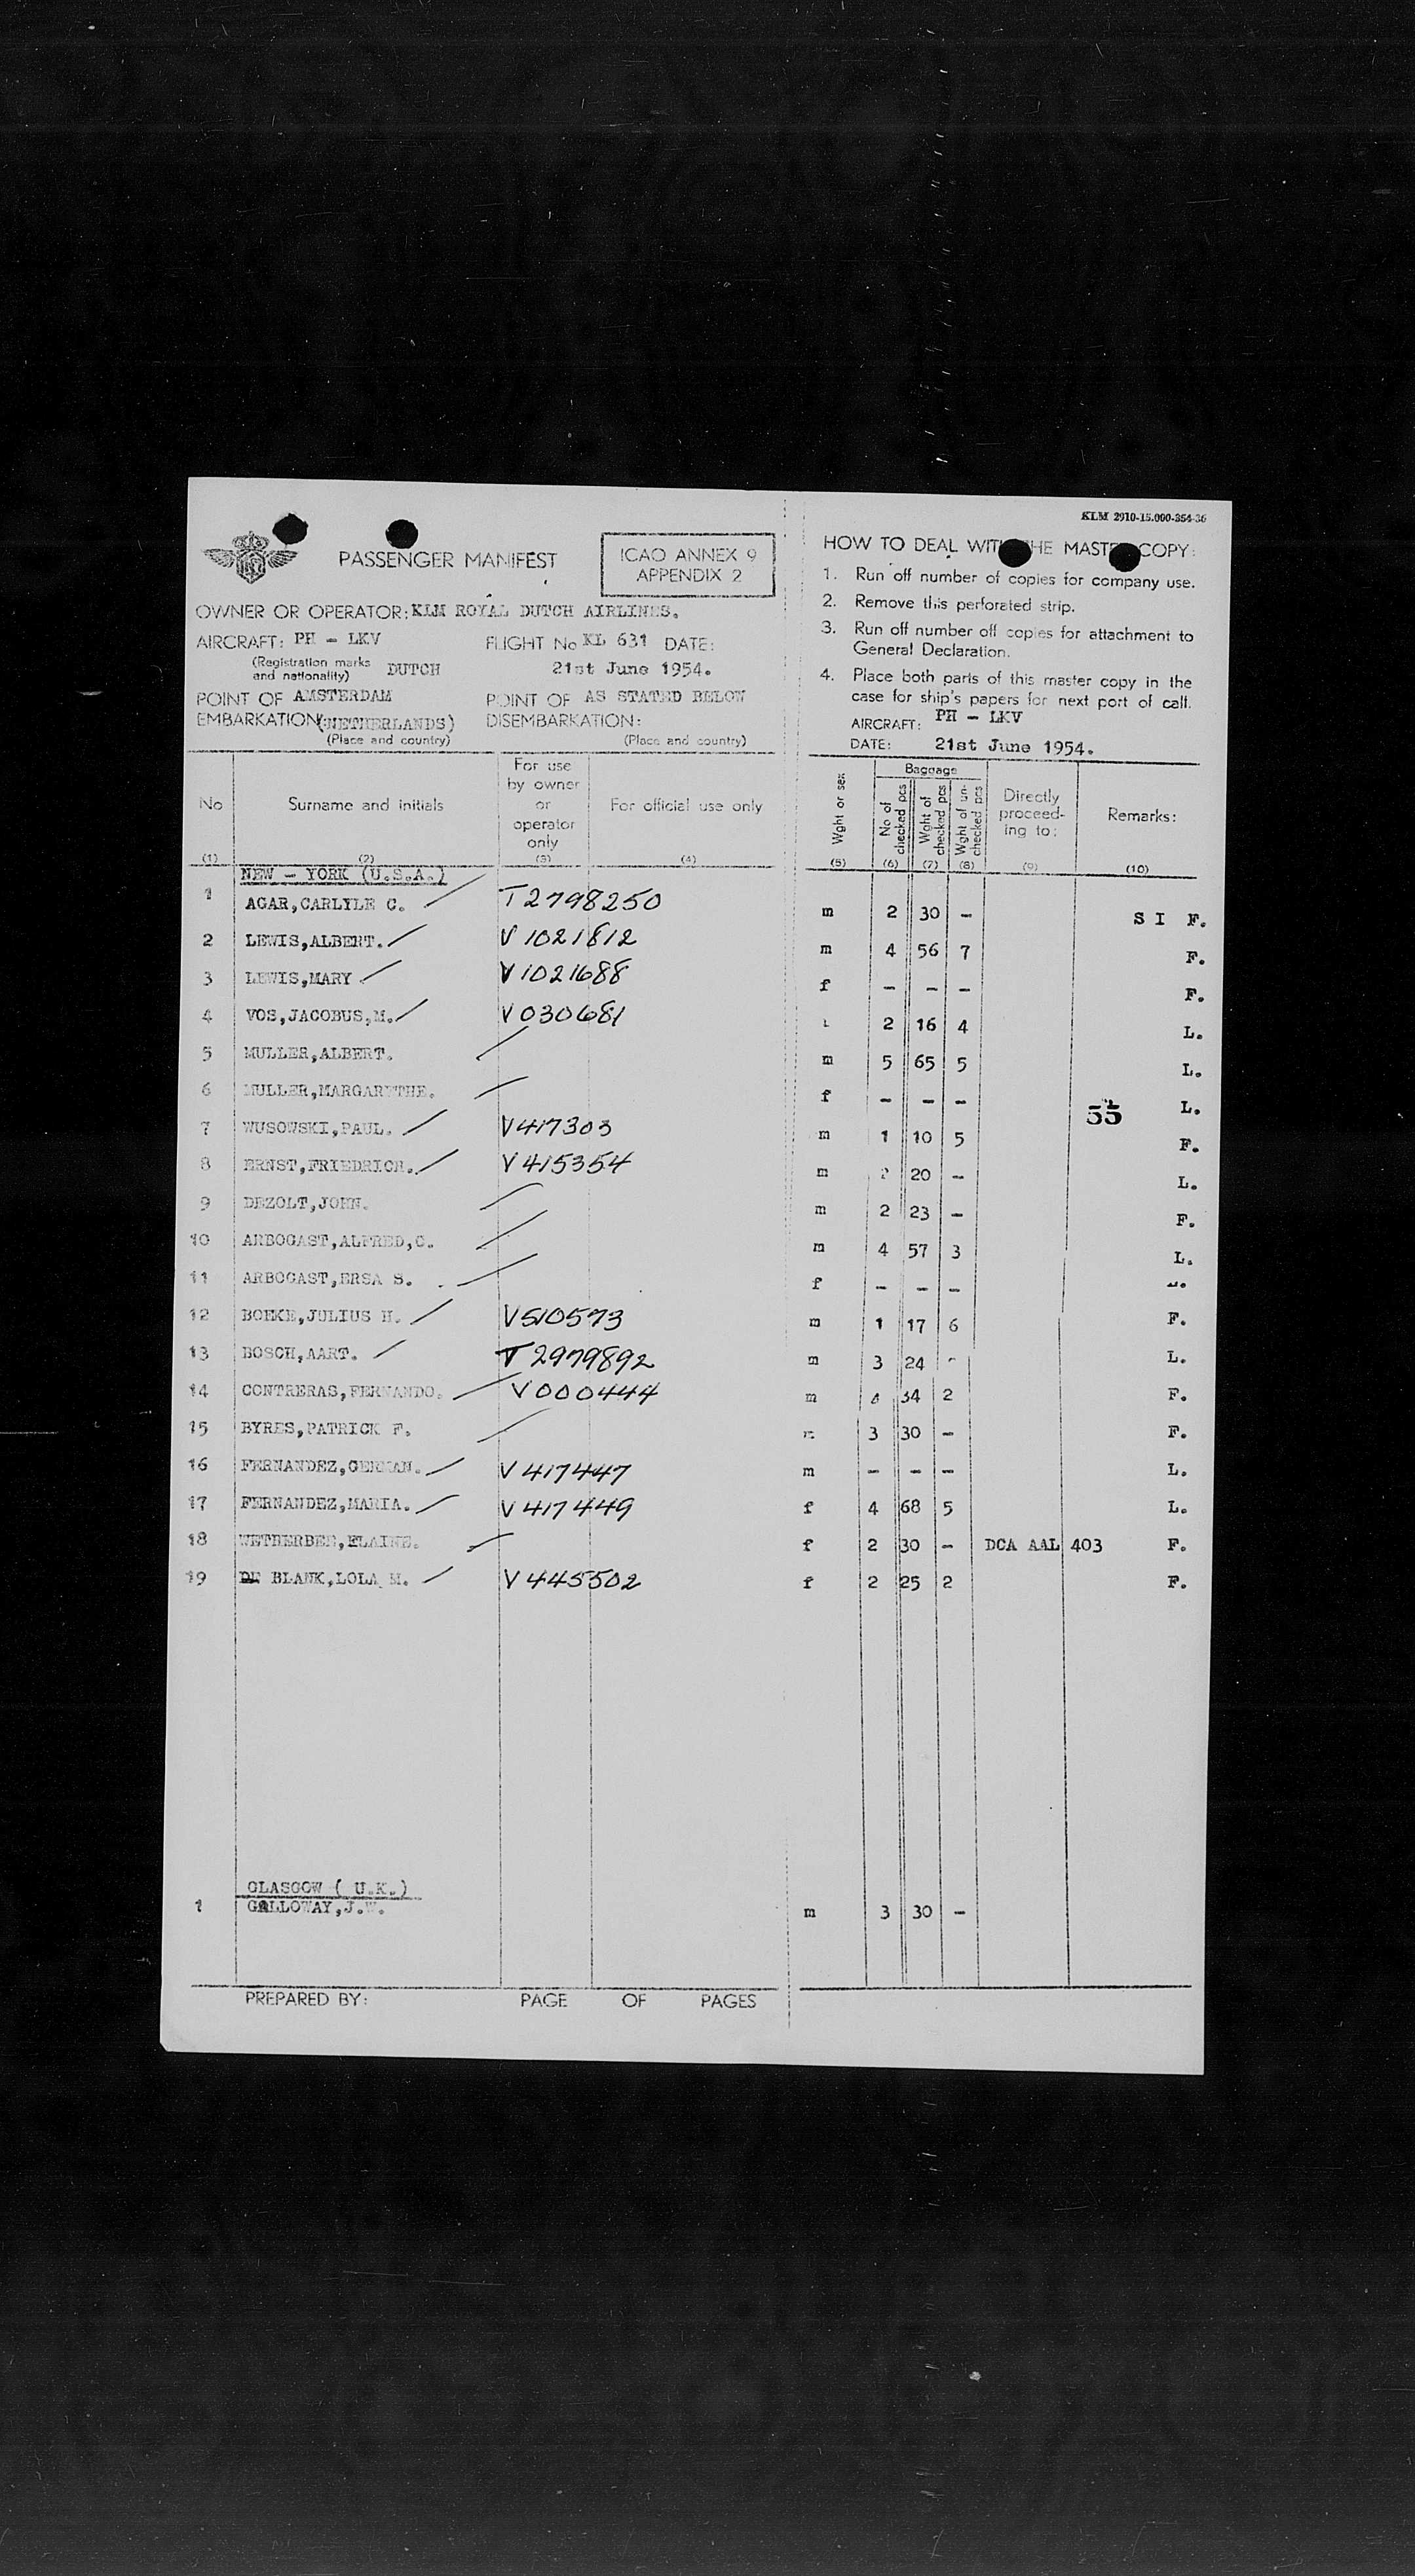 KLM 2910-15.000-354-36
PASSENGER MANIFEST
ICAO ANNEX 9
APPENDIX 2
OWNER OR OPERATOR: KLM ROYAL DUTCH AIRLINES.
AIRCRAFT: PH - LKV
FLIGHT No KL 631 DATE:
(Registration marks and nationality) DUTCH
21st June 1954.
POINT OF EMBARKATION AMSTERDAM (NETHERLANDS)
(Place and country)
POINT OF DISEMBARKATION: AS STATED BELOW
(Place and country)
HOW TO DEAL WITH THE MASTER COPY:
1. Run off number of copies for company use.
2. Remove this perforated strip.
3. Run off number off copies for attachment to
General Declaration.
4. Place both parts of this master copy in the
case for ship's papers for next port of call.
AIRCRAFT: PH - LKV
DATE: 21st June 1954.
No (1)
Surname and initials (2)
For use by owner or operator only (3)
For official use only (4)
Wght or sex (5)
Baggage
No of checked pcs (6)
Wght of checked pcs (7)
Wght of un-checked pcs (8)
Directly proceed-ing to: (9)
Remarks: (10)
NEW - YORK (U.S.A.)
1 AGAR,CARLYLE C. T2798250 m 2 30 - S I F.
2 LEWIS,ALBERT. V 1021812 m 4 56 7 F.
3 LEWIS,MARY V1021688 f - - - F.
4 VOS,JACOBUS,M. V030681 2 16 4 L.
5 MULLER,ALBERT. m 5 65 5 L.
6 MULLER,MARGARETHE. f - - - 55 L.
7 WUSOWSKI,PAUL. V417303 m 1 10 5 F.
8 ERNST,FRIEDRICH. V415354 m 2 20 - L.
9 DEZOLT,JOHN. m 2 23 - F.
10 ARBOGAST,ALFRED,C. m 4 57 3 L.
11 ARBOGAST,ERSA S. f - - - L.
12 BOEKE,JULIUS H. V510573 m 1 17 6 F.
13 BOSCH,AART. T 2979892 m 3 24 - L.
14 CONTRERAS,FERNANDO. V000444 m 4 34 2 F.
15 BYRES,PATRICK F. m 3 30 - F.
16 FERNANDEZ,GERMAN. V 417447 m - - - L.
17 FERNANDEZ,MARIA. V 417449 f 4 68 5 L.
18 WETHERBEE,ELAINE. f 2 30 - DCA AAL 403 F.
19 DE BLANK,LOLA M. V 445502 f 2 25 2 F.
GLASGOW ( U.K.)
1 GALLOWAY,J.W. m 3 30 -
PREPARED BY: PAGE OF PAGES